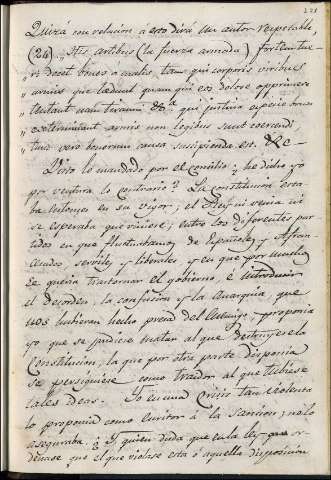 Quizá con relacion á esto dirá un autor respetable,
(24) „ His artibus (la fuerza armada)
decet bonos a malis, tam qui corporis viribus
armis que lædunt quam qui eos dolore opprimere
tentant nam tiranni &.ª qui justitiæ specie bonos
exterminant armis non legibus sunt coercendi,
tunc vero bonorum causa suscipienda est. &c
Visto lo mandado por el Concilio; he dicho yo
por ventura lo contrario? La Constitucion esta-
ba entonces en su vigor; el Rey ni venia ni
se esperaba que viniese; entre los diferentes par-
tidos en que fluctuabamos de Españoles y Afran-
cesados serviles y liberales y en que por muchos
se queria trastornar el gobierno, é introducir
el desorden, la confusion y la anarquia, que
nos hubieran hecho presa del enemigo, proponia
yo que se pudiese matar al que destruyese la
Constitucion, la que por otra parte disponia
se persiguiese como traidor al que tubiese
tales ideas. Yo en una crisis tan violenta
lo proponia como escritor á la sancion; no lo
aseguraba. ¿Y quien duda que en la ley que or-
denase que el que violase esta ó aquella disposicion